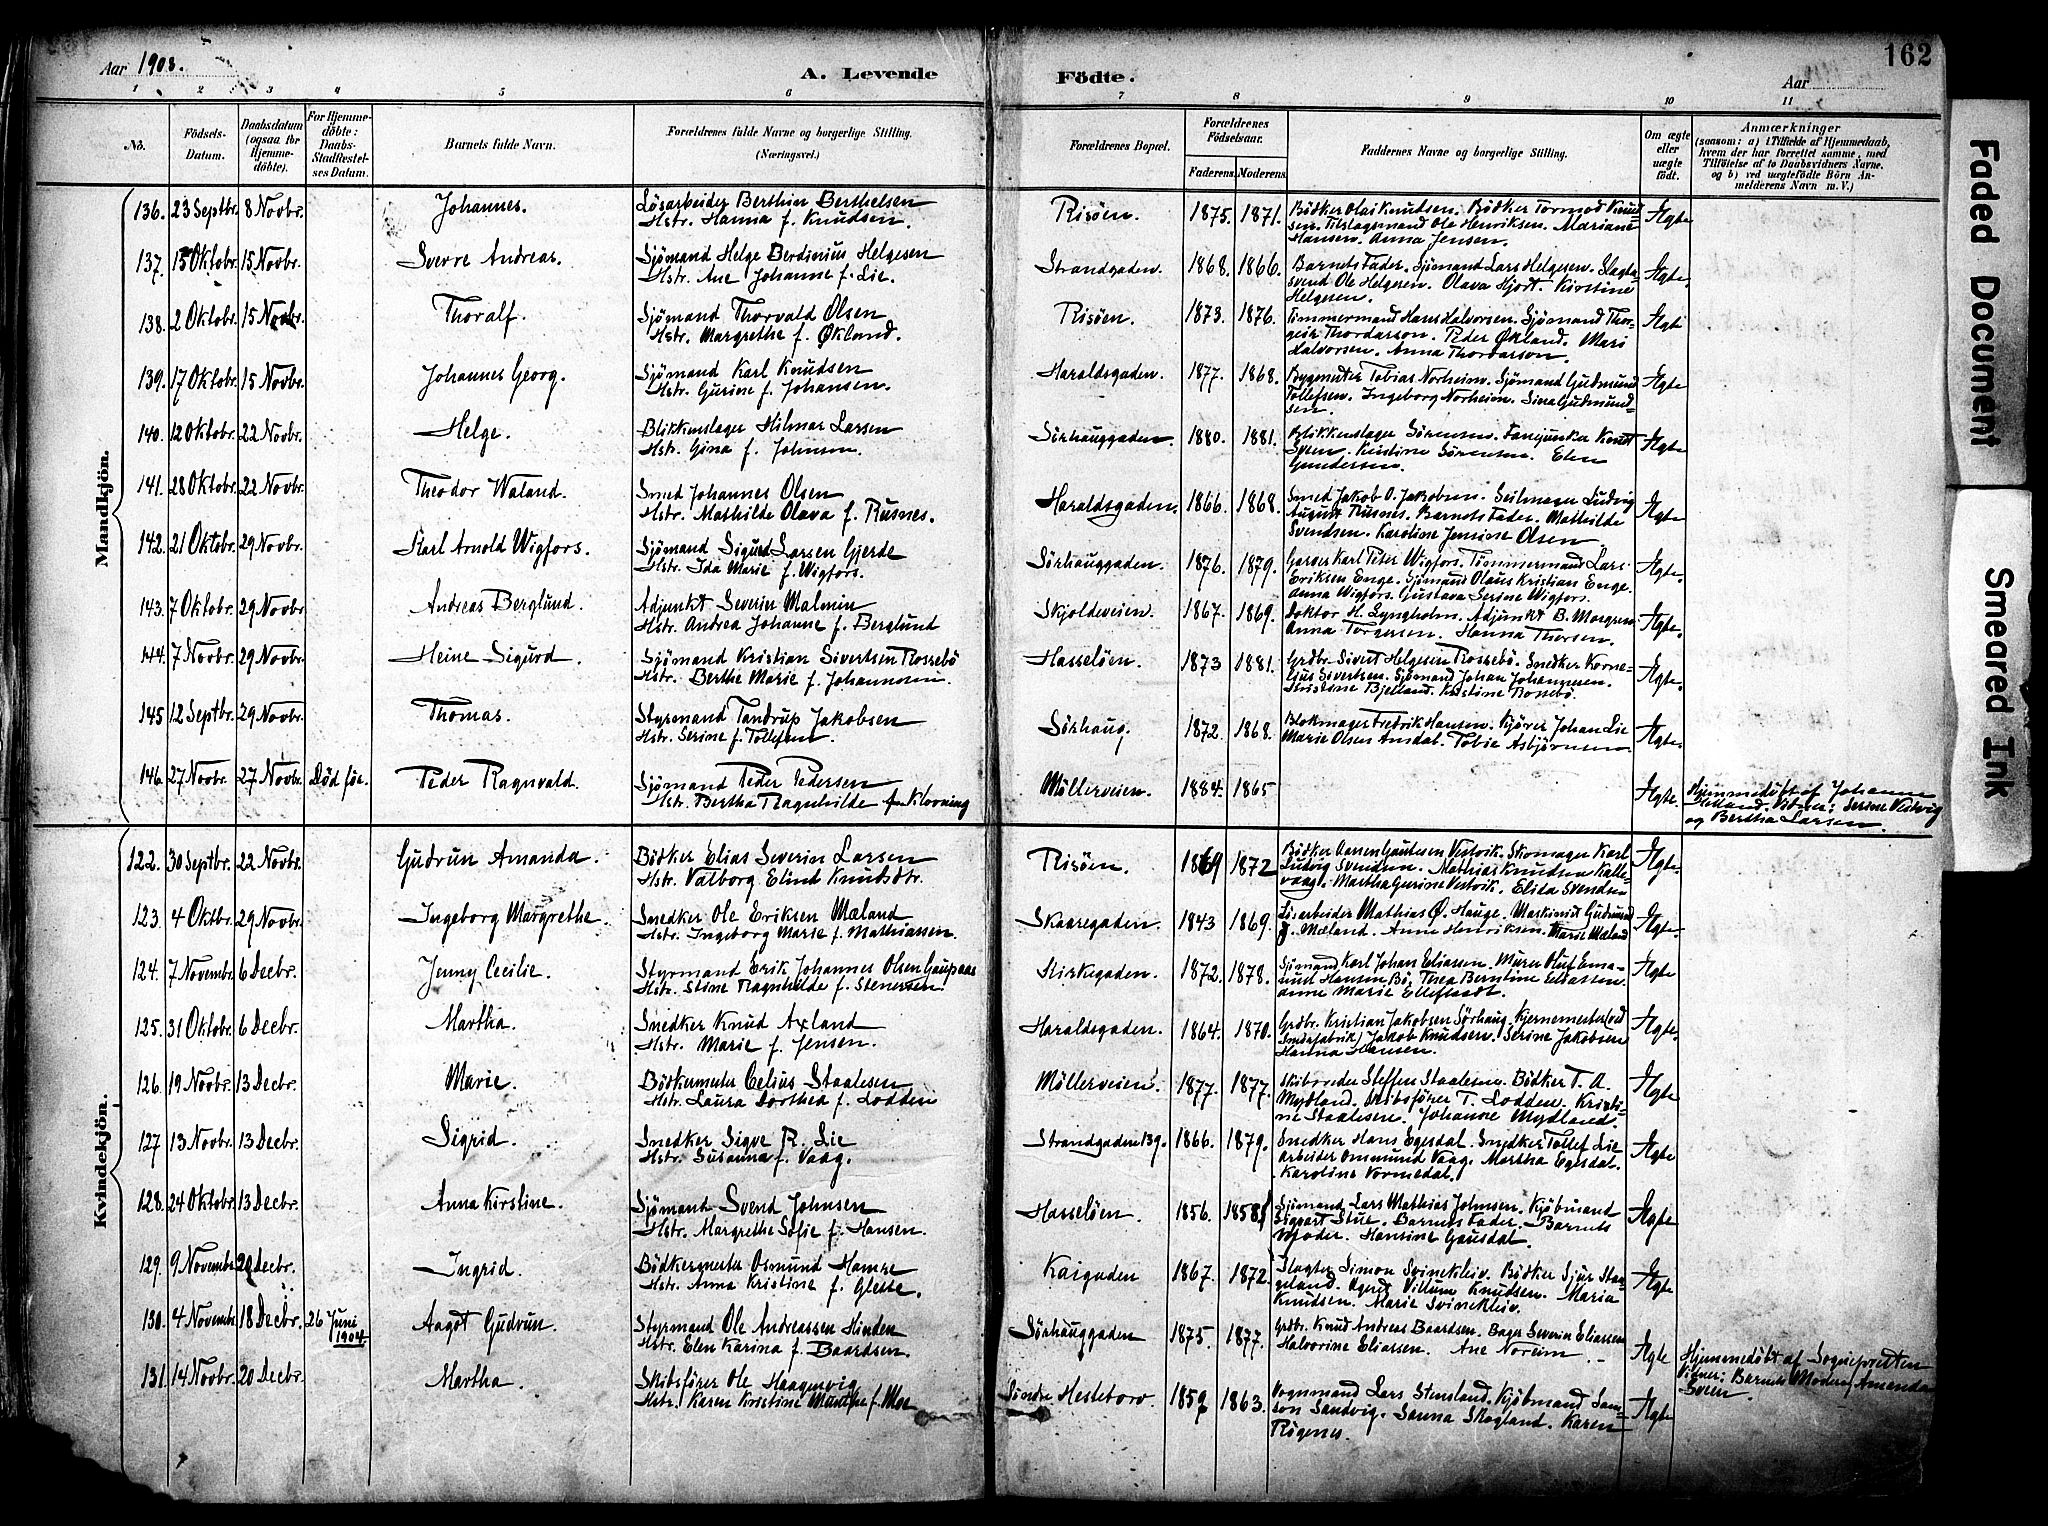 Aar 1903. A. Levende Födte. Aar 162
1 2 3 4 5 6 7 8 9 10 11
No. Födsels-Datum. Daabsdatum (ogsaa for Hjemmedöbte). For Hjemmedöbte: Daabs-Stadfæstelses Datum. Barnets fulde Navn. Forældrenes fulde Navne og borgerlige Stilling. (Næringsvei.) Forældrenes Bopæl. Forældrenes Födselsaar. Faderens. Moderens. Faddernes Navne og borgerlige Stilling. Om ægte eller uægte födt. Anmærkninger (saasom: a) i Tilfælde af Hjemmedaab, hvem der har forrettet samme, med Tilföielse af to Daabsvidners Navne, og b) ved uægtefödte Börn Anmelderens Navn m. V.)
Mandkjön.
136. 23 Septbr. 8 Novbr. Johannes. Lösarbeider Berthin Berthelsen Risöen. 1875. 1871. Bödker Olai Knudsen. Bödker Tormod Knud- Ægte
Hstr. Hanna f. Knudsen. sen. Tilslagsmand Ole Henriksen. Mariane
Hansen. Anna Jensen.
137. 15 Oktobr. 15 Novbr. Sverre Andreas. Sjömand Helge Berdinius Helgesen Strandgaden. 1868. 1866. Barnets Fader. Sjömand Lars Helgesen. Slagter- Ægte.
Hstr. Ane Johanne f. Lie. svend Ole Helgesen. Olava Hjort. Kirstine
Helgesen.
138. 2 Oktobr. 15 Novbr. Thoralf. Sjömand Thorvald Olsen Risöen. 1873. 1876. Timmermand Hans Halvorsen. Sjömand Thor- Ægte
Hstr. Margrethe f. Økland. geir Thordarson. Peder Økland. Mari
Halvorsen. Anna Thordarson.
139. 17 Oktobr. 15 Novbr. Johannes Georg. Sjömand Karl Knudsen Haraldsgaden. 1877. 1868. Bygmester Tobias Norheim. Sjömand Gudmund Ægte
Hstr. Gurine f. Johansen. Tollefsen. Ingeborg Norheim. Sina Gudmund-
sen.
140. 12 Oktobr. 22 Novbr. Helge. Blikkenslager Hilmar Larsen Sörhauggaden. 1880. 1881. Blikkenslager Sörensen. Fanejunker Knut Ægte
Hstr. Gina f. Johnson. Sveen. Kristine Sörensen. Elen
Gundersen.
141. 28 Oktobr. 22 Novbr. Theodor Waland. Smed Johannes Olsen Haraldsgaden. 1866. 1868. Smed Jakob O. Jakobsen. Seilmager Ludvig Ægte
Hstr. Mathilde Olava f. Rusnes. August Rusnes. Barnets Fader. Mathilde
Svendsen. Karoline Jensine Olsen.
142. 21 Oktobr. 29 Novbr. Karl Arnold Wigfors. Sjömand Sigurd Larsen Gjerde Sörhauggaden. 1876. 1879. Garver Karl Peter Wigfors. Tömmermand Lars Ægte.
Hstr. Ida Marie f. Wigfors. Eriksen Enge. Sjömand Olaus Kristian Enge.
Anna Wigfors. Gustava Serine Wigfors.
143. 7 Oktobr. 29 Novbr. Andreas Berglund. Adjunkt Severin Malmin Skjoldveien. 1867. 1869. Doktor H. Lyngholm. Adjunkt B. Morgren Ægte.
Hstr. Andrea Johanne f. Berglund Anna Torgersen. Hanna Thorsen.
144. 7 Novbr. 29 Novbr. Heine Sigurd. Sjömand Kristian Sivertsen Rossebö Hasselöen. 1873 1881. Grdbr. Sivert Helgesen Rossebö. Snedker Korne- Ægte.
Hstr. Berthe Marie f. Johannesen. lius Sivertsen. Sjömand Johan Johannesen.
Kristine Bjelland. Kristine Rossebö.
145 12 Septbr. 29 Novbr. Thomas. Styrmand Tandrup Jakobsen Sörhaug. 1872. 1868. Blokmager Fredrik Hansen. Kjörer Johan Lie Ægte.
Hstr. Serine f. Tollefsen. Marie Olsen Ansdal. Tobie Asbjörnsen
146. 27 Novbr. 27 Novbr. Död för. Peder Ragnvald. Sjömand Peder Pedersen Möllerveien. 1884. 1865 Ægte. Hjemmedöbt af Johanne
Hstr. Bertha Ragnhilde f. Klovning Vidner: Serine Vestvig
og Bertha Larsen.
Kvindekjön.
122. 30 Septbr. 22 Novbr. Gudrun Amanda. Bödker Elias Severin Larsen Risöen. 1869 1872 Bödker Aasen Gautesen Vestvik. Skomager Karl Ægte.
Hstr. Valborg Elind Knudsdtr. Ludvig Svendsen. Mathias Knudsen Kalle-
vaag. Martha Gurine Vestvik. Elisa Svendsen
123. 4 Oktbr. 29 Novbr. Ingeborg Margrethe. Snedker Ole Eriksen Mæland Skaaregaden. 1843 1869. Lösarbeider Mathias Ø. Hauge. Maskinist Gudmund Ægte.
Hstr. Ingeborg Marie f. Mathiassen. G. Mæland. Anne Henriksen. Marie Mæland
124. 7 Novembr. 6 Decbr. Jenny Cecilie. Styrmand Erik Johannes Olsen Gaupaas Kirkegaden. 1872. 1878. Sjömand Karl Johan Eliassen. Murer Oluf Ema- Ægte
Hstr. Stine Ragnhilde f. Stenersen nuel Hansen Bö. Thea Berntine Eliassen.
Anne Marie Elleflaadt.
125. 31 Oktobr. 6 Decbr. Martha. Snedker Knud Axland Haraldsgaden. 1864. 1870. Grdbr. Kristian Jakobsen Sörhaug. Kjernemester (ved Ægte.
Hstr. Marie f. Jensen. Smörfabrik) Jakob Knudsen. Serine Jakobsen
Hanna Hansen.
126. 19 Novbr. 13 Decbr. Marie. Bödkermester Celius Staalesen Möllerveien. 1877. 1877. Skibsreder Steffen Staalesen. Bödker T. A. Ægte
Hstr. Laura Dorthea f. Lodden Mydland. Skibsförer T. Lodden. Kristi-
ne Staalesen. Johanne Mydland.
127 13 Novbr. 13 Decbr. Sigrid. Snedker Sigve R. Lie Strandgaden 139. 1866. 1879. Snedker Hans Egesdal. Snedker Tollef Lie Ægte
Hstr. Susanna f. Vaag. Arbeider Ommund Vaag. Martha Egesdal.
Karoline Vormedal.
128. 24 Oktobr. 13 Decbr. Anna Kirstine. Sjömand Svend Johnsen Hasselöen. 1856. 1858. Sjömand Lars Mathias Johnsen. Kjöbmand Ægte
Hstr. Margrethe Sofie f. Hansen. Sigvart Stue. Barnets Fader. Barnets
Moder. Hansine Gausdal.
129. 9 Novembr. 20 Decbr. Ingrid. Bödkermester Osmund Hamre Kaigaden 1867. 1872. Slagter Simon Svinekleiv. Bödker Sjur Staa- Ægte
Hstr. Anna Kristine f. Glette. geland. Agent Villum Knudsen. Maria
Knudsen. Marie Svinekleiv.
130. 4 Novembr. 18 Decbr. 26 Juni 1904. Aagot Gudrun. Styrmand Ole Andreassen Hinden Sörhauggaden 1875. 1877. Grdbr. Knud Andreas Baardsen. Bager Severin Eliassen Ægte Hjemmedöbt af Sognepresten
Hstr. Elen Karina f. Baardsen. Halvorine Eliassen. Ane Noreim. Vidner: Barnets Moder, Amanda
Sveen.
131. 14 Novbr. 20 Decbr. Martha. Skibsförer Ole Haagensvig Söndre Hesteborv. 1859 1863. Vognmand Lars Stensland. Kjöbmand Sam- Ægte
Hstr. Karen Kristine f. Moe son Sandvig. Sanna Skogland. Karen
Rögenes.
Faded Document
Smeared Ink